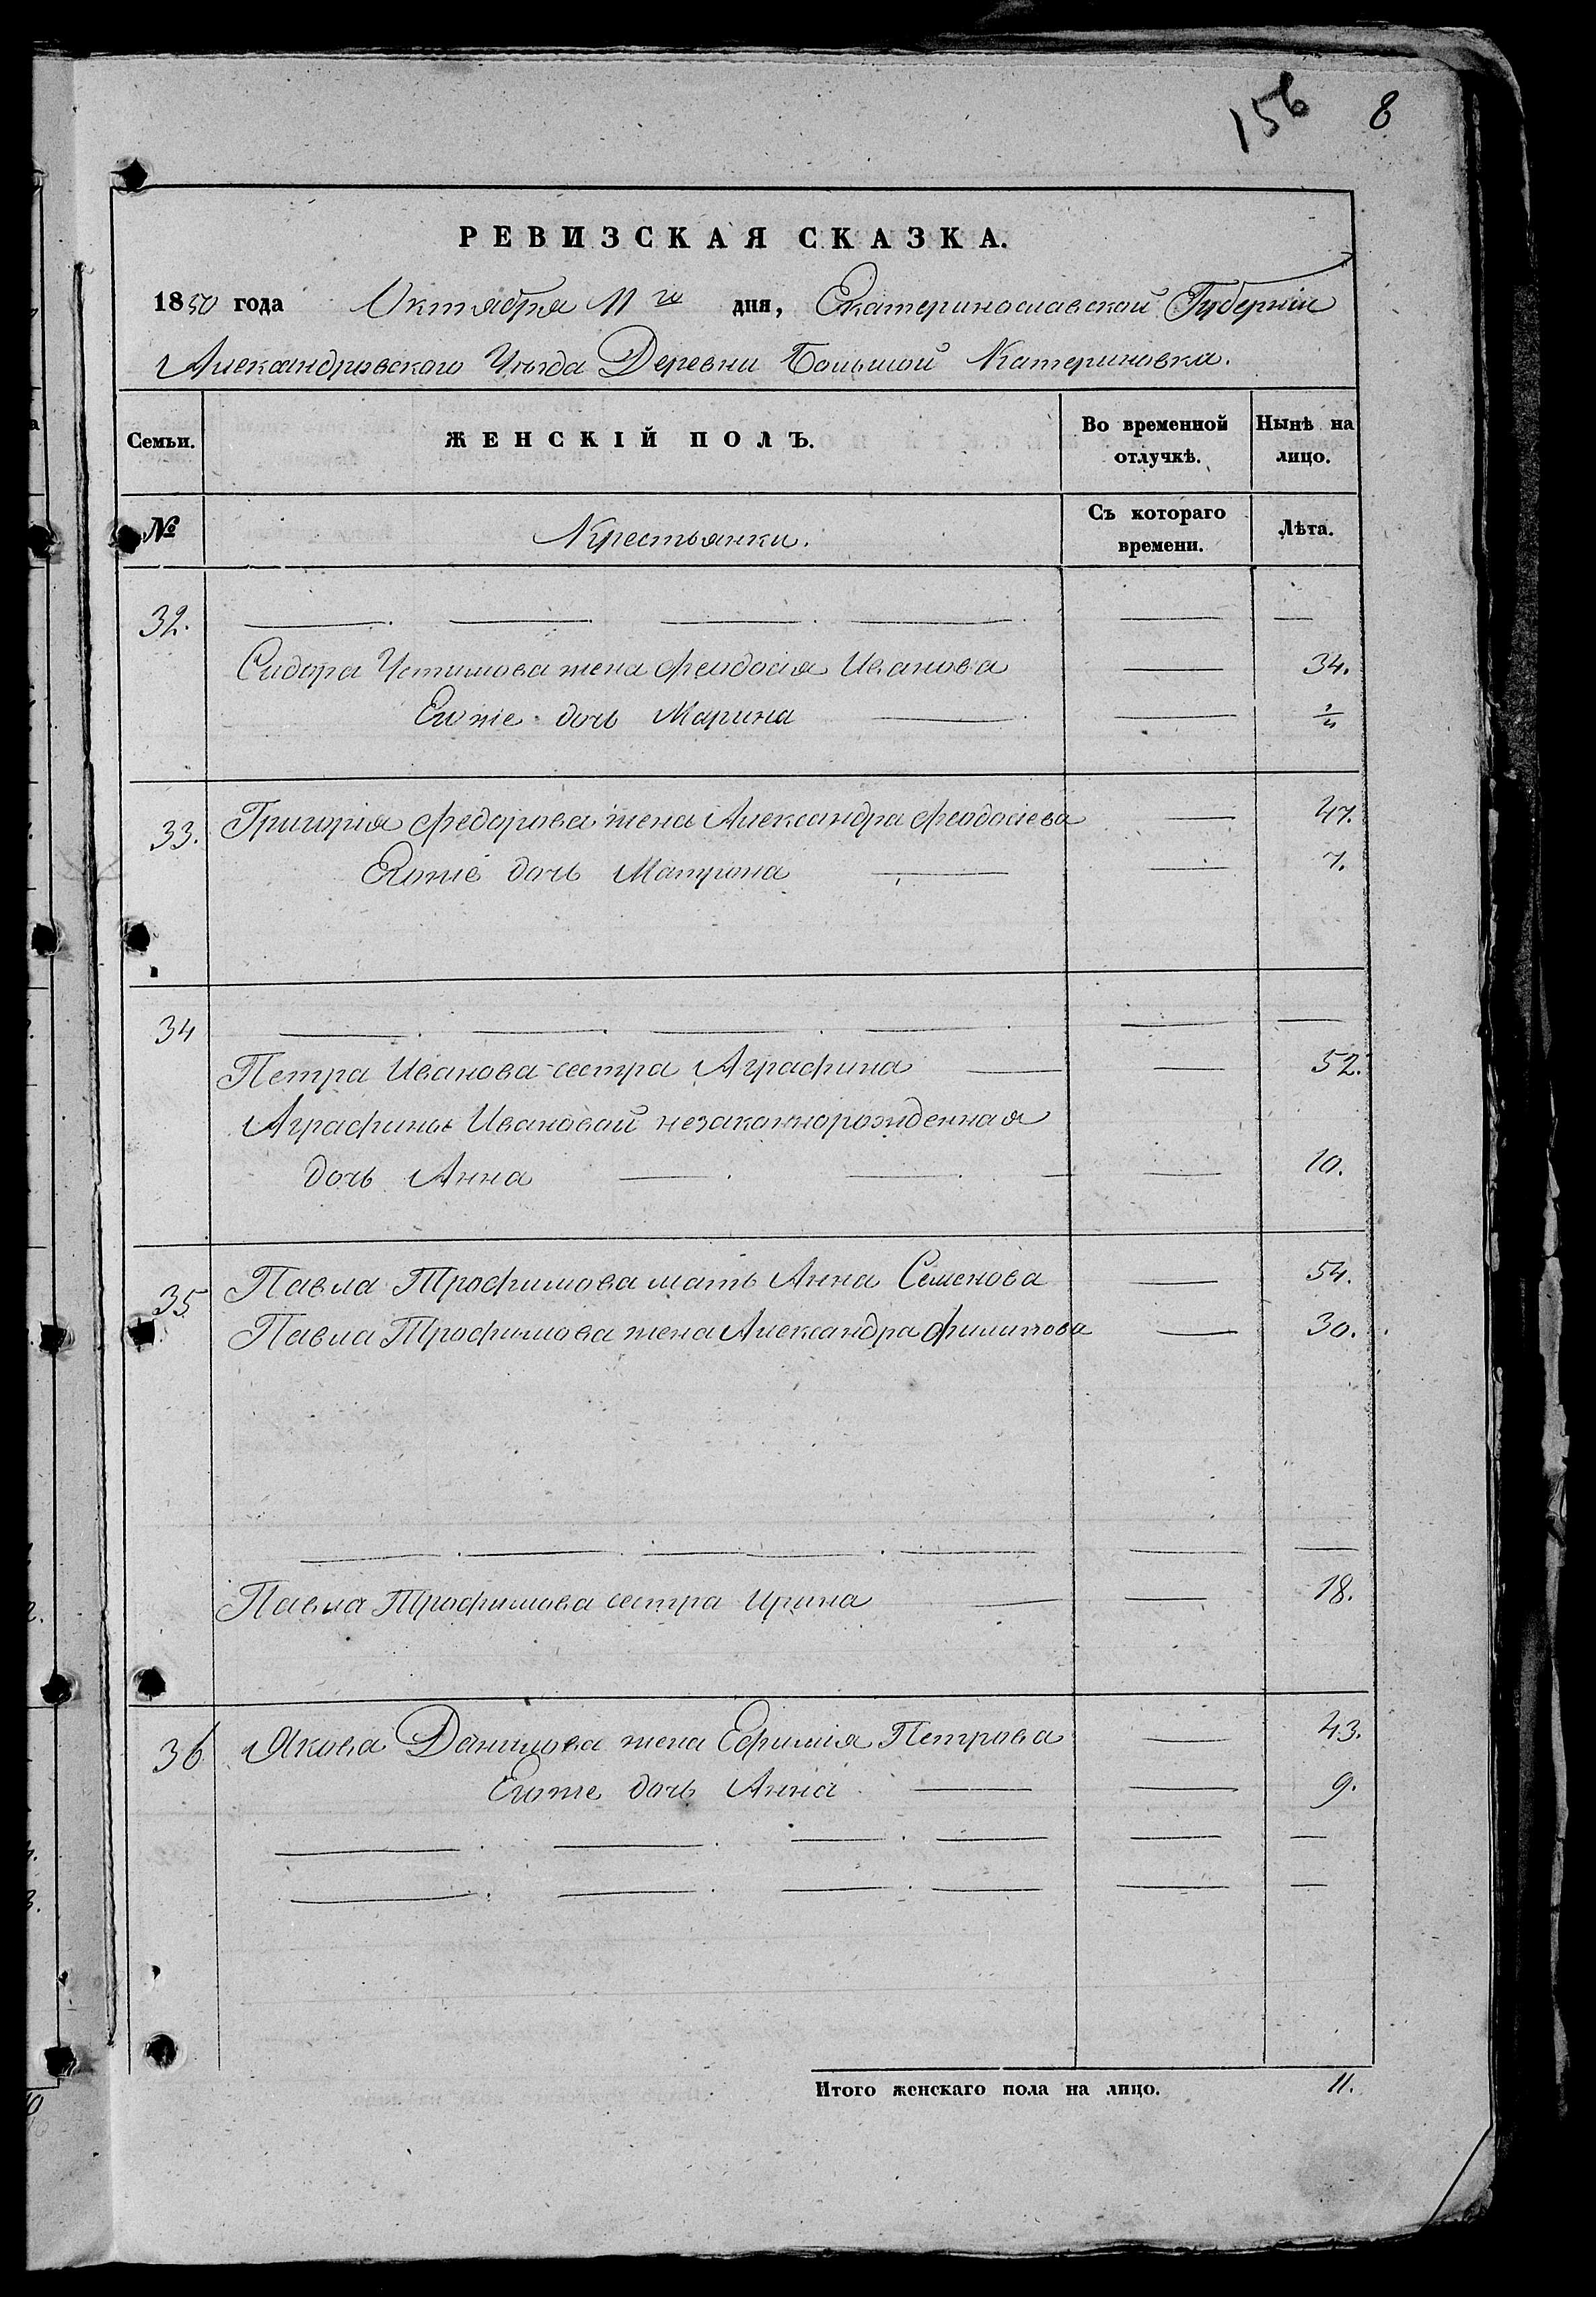 156 8
РЕВИЗСКАЯ СКАЗКА.
1850 года Октября 11го дня, Екатеринославской Губерніи
Александровскаго Уѣзда Деревни Большой Катериновка.
Семьи. ЖЕНСКІЙ ПОЛЪ. Во временной отлучкѣ. Нынѣ на лицо.
№ Крестьянки. Съ котораго времени. Лѣта.
32. — — — — — —
Сидора Устимова жена Феодосія Иванова — 34.
Егоже дочь Марина — —
33. Григорія Федорова жена Александра Феодосіева — 47.
Егоже дочь Матрона — — 7.
34 — — — — — —
Петра Иванова сестра Аграфина — — 52.
Аграфины Ивановой незаконнорожденная
дочь Анна — — — — 10.
35 Павла Трофимова мать Анна Семенова — 54.
Павла Трофимова жена Александра Филипова — 30.
— — — — — —
Павла Трофимова сестра Ирина — — 18.
36 Якова Данилова жена Ефимія Петрова — 43.
Егоже дочь Анна — — 9.
— — — — — —
— — — — — —
Итого женскаго пола на лицо. 11.